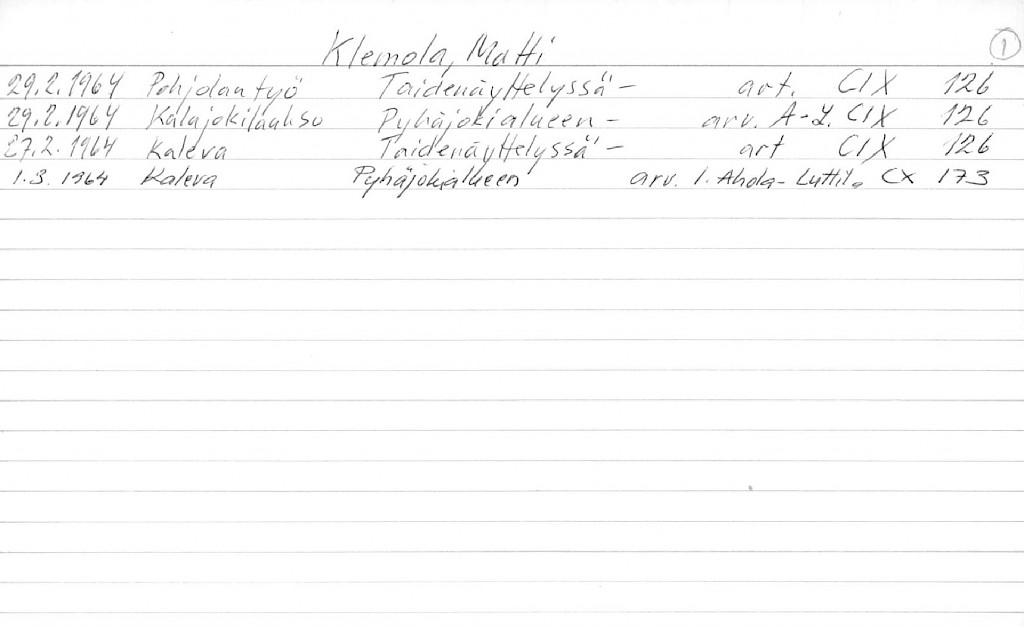 Klemola, Matti 1
29.2.1964 Pohjolan työ Taidenäyttelyssä - art. CIX 126
29.2.1964 Kalajokilaakso Pyhäjokialueen - arv. A-L. CIX 126
27.2.1964 Kaleva Taidenäyttelyssä - art CIX 126
1.3.1964 Kaleva Pyhäjokialueen arv. I. Ahola-Luttila CX 173